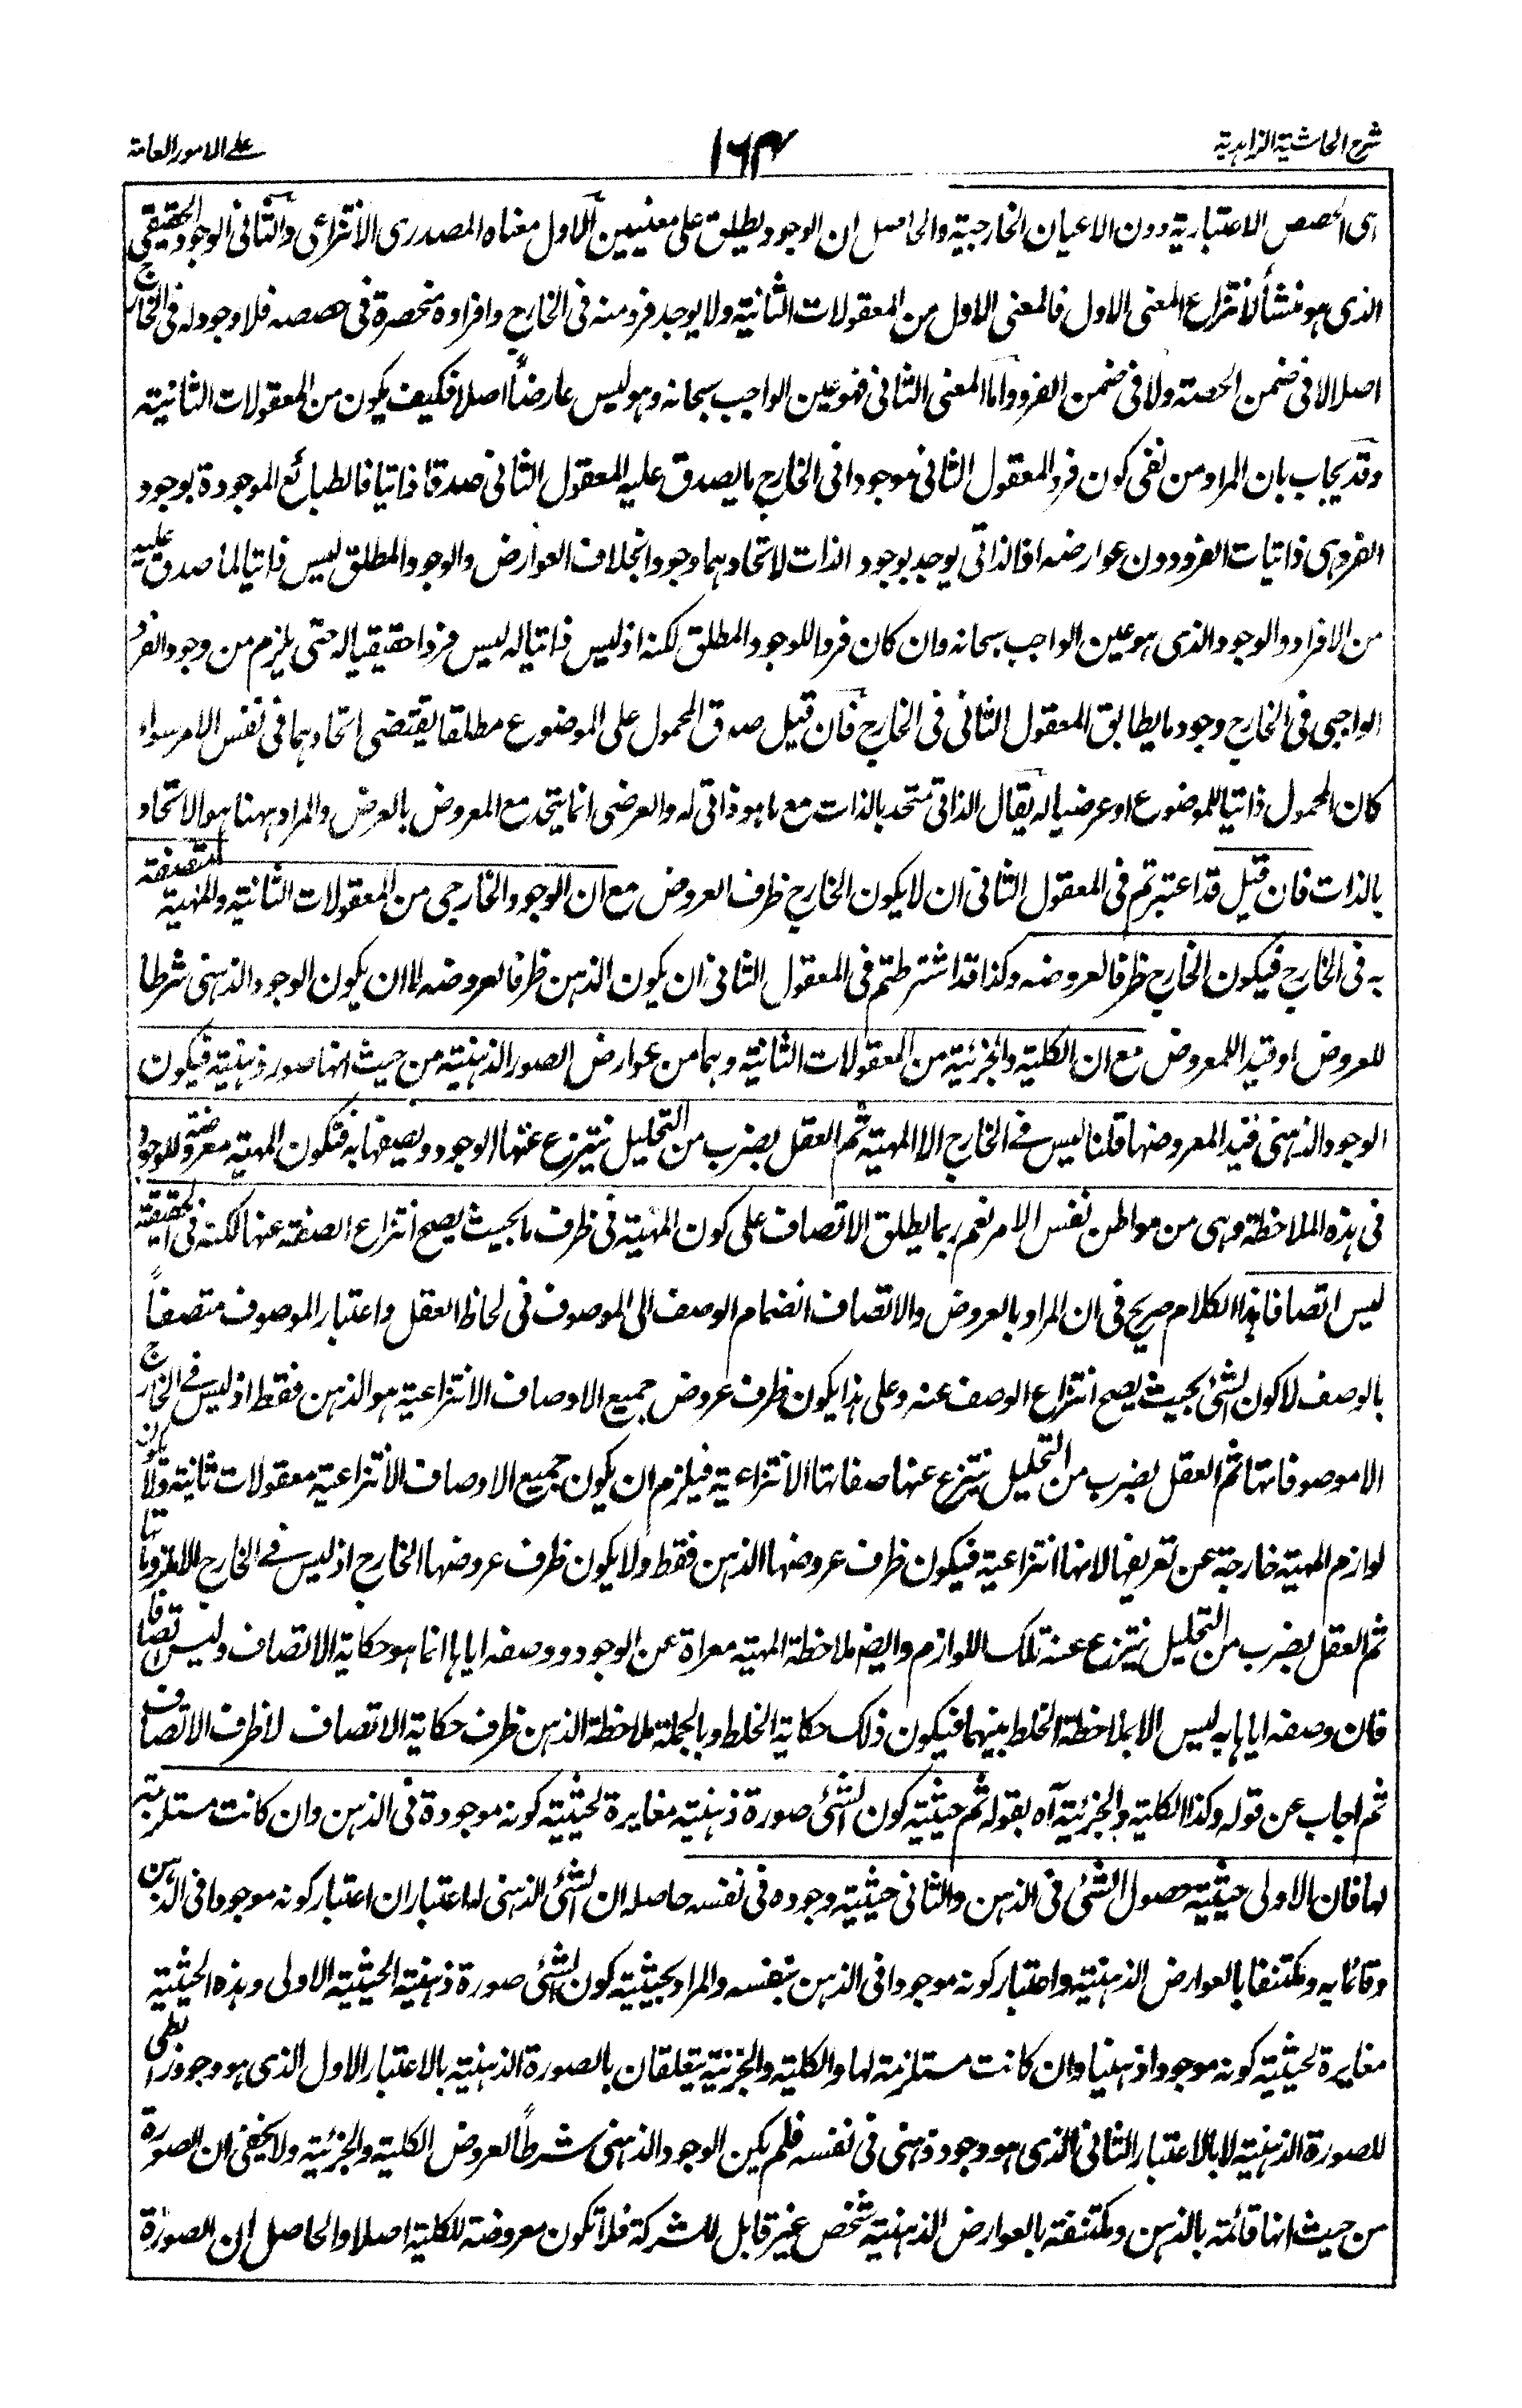 شرح الحاشية الزاهدية
١٦٣
على الامور العامة
اى الحصص الاعتبارية دون الاعيان الخارجية والحاصل ان الوجود يطلق على معنيين الاول معناه المصدرى الانتزاعى والثانى الوجود الحقيقى
الذى هو منشأ لانتزاع المعنى الاول فالمعنى الاول من المعقولات الثانية ولا يوجد فرد منه فى الخارج وافراده منحصرة فى حصصه فلا وجود له فى الخارج
اصلا لا فى ضمن الحصة ولا فى ضمن الفرد واما المعنى الثانى فهو عين الواجب سبحانه وهو ليس عارضاً اصلا فكيف يكون من المعقولات الثانية
وقد يجاب بان المراد من نفى كون فرد المعقول الثانى موجودا فى الخارج ما يصدق عليه المعقول الثانى صدقا ذاتيا فالطبائع الموجودة بوجود
الفرد هى ذاتيات الفرد دون عوارضه اذ الذاتى يوجد بوجود الذات لاتحادهما وجودا بخلاف العوارض والوجود المطلق ليس ذاتيا لما صدق عليه
من الافراد والوجود الذى هو عين الواجب سبحانه وان كان فردا للوجود المطلق لكنه اذ ليس ذاتيا له ليس فردا حقيقيا له حتى يلزم من وجود الفرد
الواجبى فى الخارج وجود ما يطابق المعقول الثانى فى الخارج فان قيل صدق المحمول على الموضوع مطلقا يقتضى اتحادهما فى نفس الامر سواء
كان المحمول ذاتيا للموضوع او عرضيا له يقال الذاتى متحد بالذات مع ما هو ذاتى له والعرضى انما يتحد مع المعروض بالعرض والمراد ههنا هو الاتحاد
بالذات فان قيل قد اعتبرتم فى المعقول الثانى ان لا يكون الخارج ظرف العروض مع ان الوجود الخارجى من المعقولات الثانية والمهية متصفة
به فى الخارج فيكون الخارج ظرفا لعروضه وكذا قد اشترطتم فى المعقول الثانى ان يكون الذهن ظرفا لعروضه لا ان يكون الوجود الذهنى شرطا
للعروض او قيدا للمعروض مع ان الكلية والجزئية من المعقولات الثانية وهما من عوارض الصور الذهنية من حيث انها صور ذهنية فيكون
الوجود الذهنى قيدا لمعروضها قلنا ليس فى الخارج الا المهية ثم العقل بضرب من التحليل ينتزع عنها الوجود ويصفها به فتكون المهية معروضة للوجود
فى هذه الملاحظة وهى من مواطن نفس الامر نعم ربما يطلق الاتصاف على كون المهية فى ظرف ما بحيث يصح انتزاع الصفة عنها لكنه فى الحقيقة
ليس اتصافا هذا الكلام صريح فى ان المراد بالعروض والاتصاف انضمام الوصف الى الموصوف فى لحاظ العقل واعتبار الموصوف متصفاً
بالوصف لا كون الشئ بحيث يصح انتزاع الوصف عنه وعلى هذا يكون ظرف عروض جميع الاوصاف الانتزاعية هو الذهن فقط اذ ليس فى الخارج
الا موصوفاتها ثم العقل بضرب من التحليل ينتزع عنها صفاتها الانتزاعية فيلزم ان يكون جميع الاوصاف الانتزاعية معقولات ثانية ولا يكون
لوازم المهية خارجة عن تعريفها لانها انتزاعية فيكون ظرف عروضها الذهن فقط ولا يكون ظرف عروضها الخارج اذ ليس فى الخارج الا ملزوماتها
ثم العقل بضرب من التحليل ينتزع عنه تلك اللوازم وايضا ملاحظة المهية معراة عن الوجود ووصفه اياها انما هو حكاية الاتصاف وليس اتصافا
فان وصفه اياها به ليس الا بملاحظة الخلط بينهما فيكون ذلك حكاية الخلط وبالجملة ملاحظة الذهن ظرف حكاية الاتصاف لا ظرف الاتصاف
ثم اجاب عن قوله وكذا الكلية والجزئية آه بقوله ثم حيثية كون الشئ صورة ذهنية مغايرة لحيثية كونه موجودة فى الذهن وان كانت مستلزمة
لها فان الاولى حيثية حصول الشئ فى الذهن والثانى حيثية وجوده فى نفسه حاصله ان الشئ الذهنى له اعتباران اعتبار كونه موجودا فى الذهن
وقائما به ومكتنفا بالعوارض الذهنية واعتبار كونه موجودا فى الذهن بنفسه والمراد بحيثية كون الشئ صورة ذهنية الحيثية الاولى وهذه الحيثية
مغايرة لحيثية كونه موجودا ذهنيا وان كانت مستلزمة لها والكلية والجزئية يتعلقان بالصورة الذهنية بالاعتبار الاول الذى هو وجود رابطى
للصورة الذهنية لا بالاعتبار الثانى الذى هو وجود ذهنى فى نفسه فلم يكن الوجود الذهنى شرطاً لعروض الكلية والجزئية ولا يخفى ان الصورة
من حيث انها قائمة بالذهن ومكتنفة بالعوارض الذهنية شخص غير قابل للشركة فلا تكون معروضة للكلية اصلا والحاصل ان الصورة